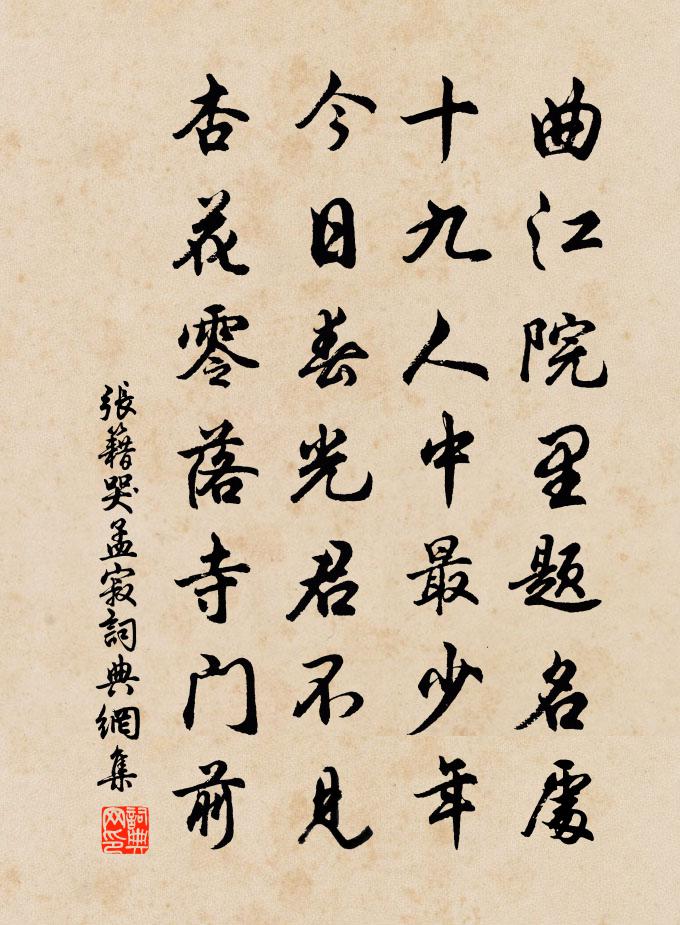 曲江院里題名處
十九人中最少年
今日春光君不見
杏花零落寺門前
張籍哭孟寂詞典網集
詞典网印